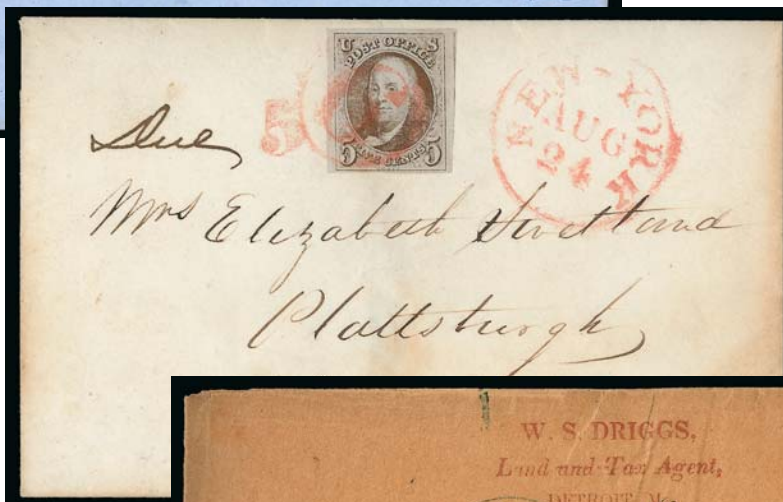 U S
POST OFFICE
5 FIVE CENTS 5
Due 5
NEW-YORK
AUG
24
Mrs Elizabeth
Plattsburgh
W. S. DRIGGS,
Land and Tax Agent,
DETROIT,